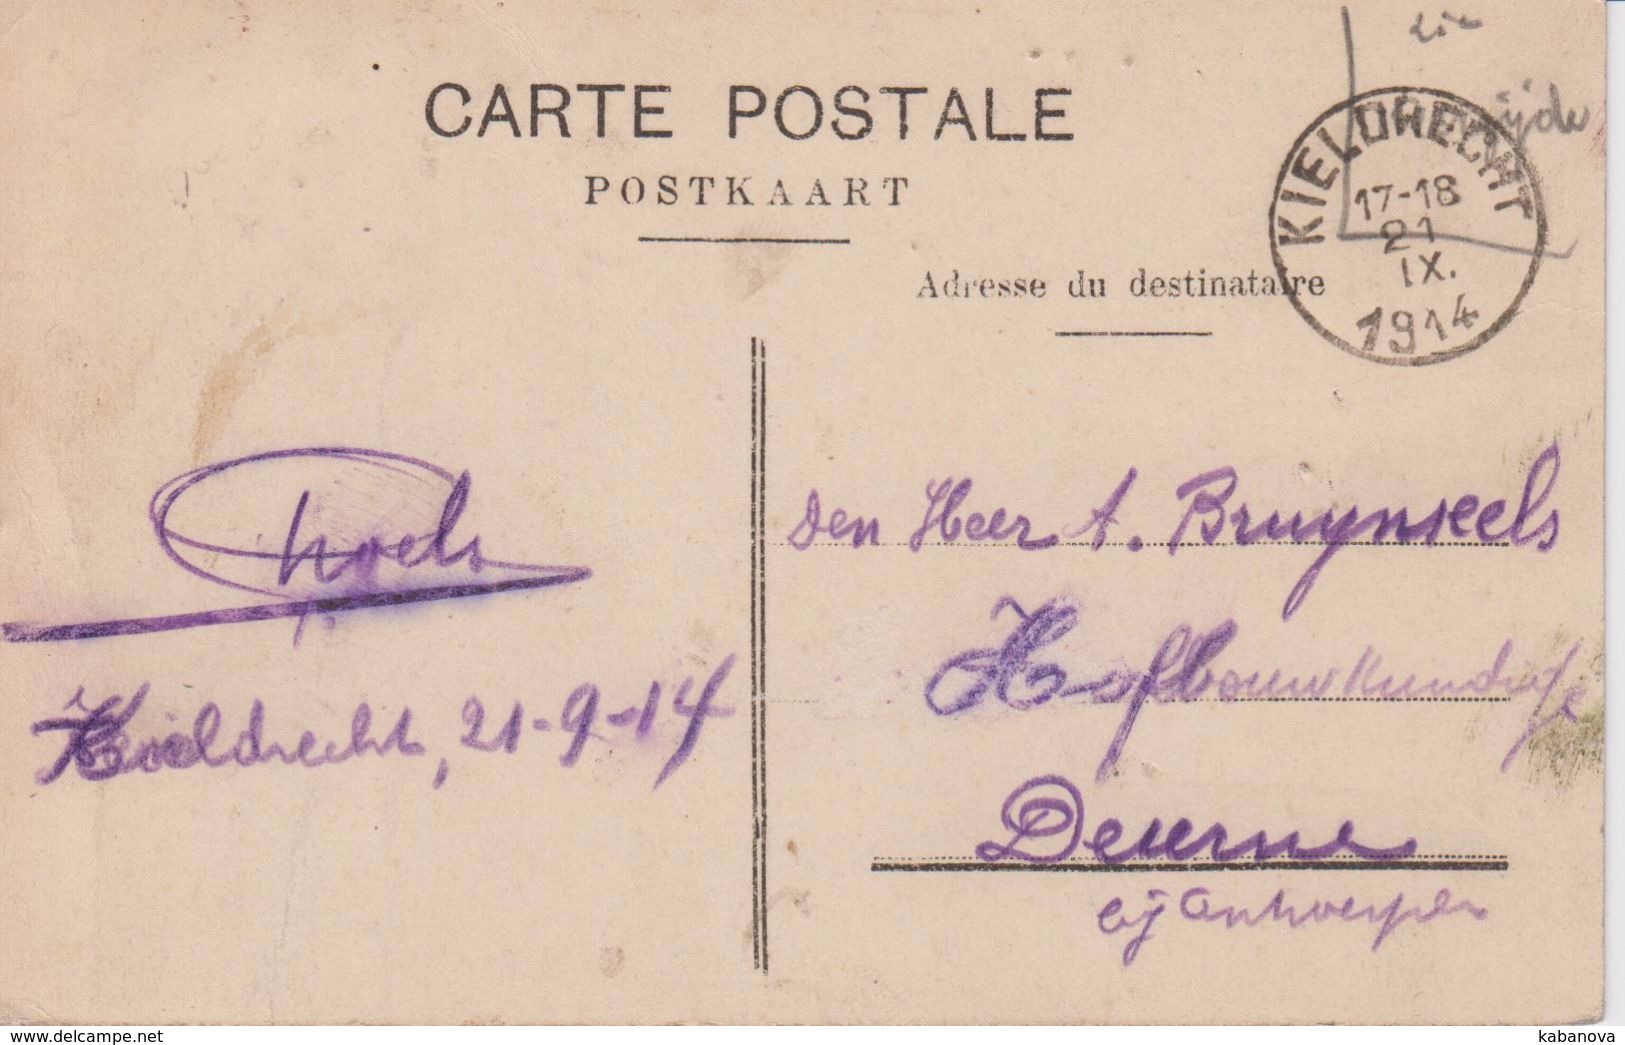 CARTE POSTALE
POSTKAART
Adresse du destinataire
KIELDRECHT
17-18
21
IX.
1914
Den Heer A. Bruynseels
Hofbouwkundige
Deurne
bij Antwerpen
Kieldrecht, 21-9-14
www.delcampe.net
kabanova